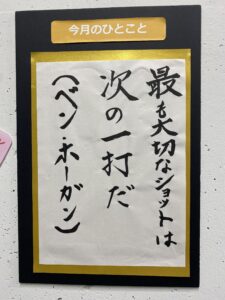 今月のひとこと
最も大切なショットは
次の一打だ
(ベン・ホーガン)